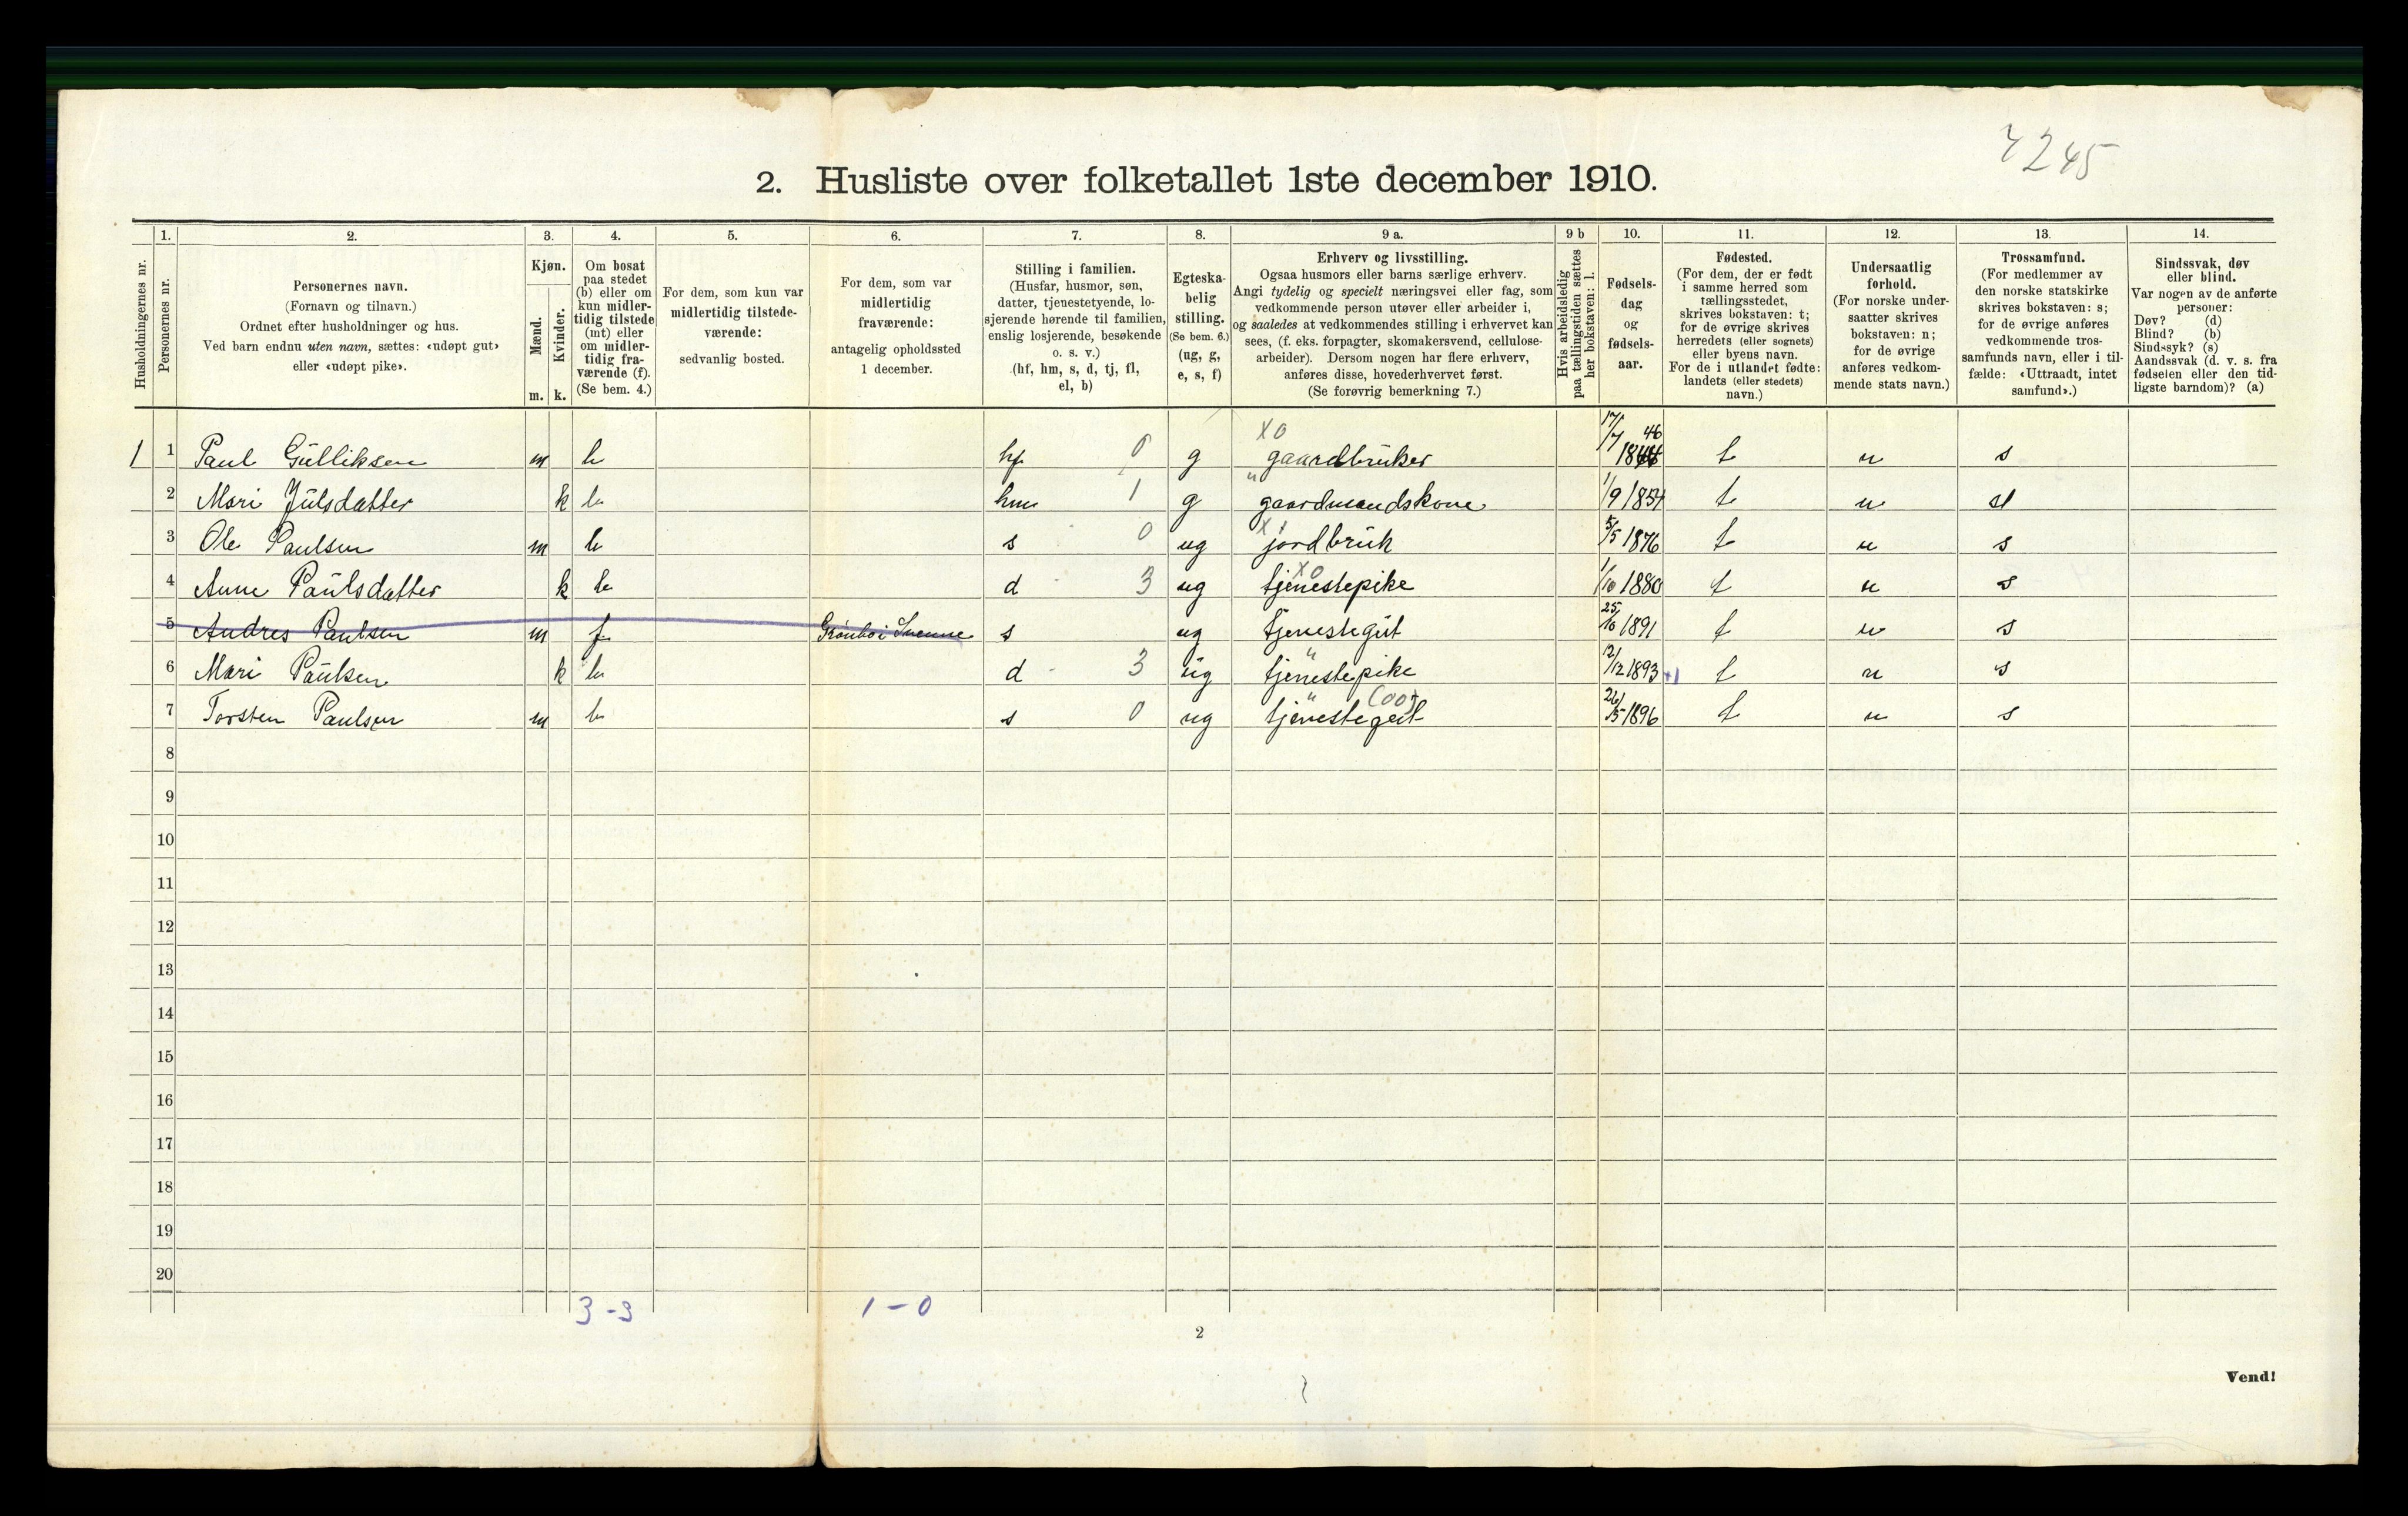 4245
2. Husliste over folketallet 1ste december 1910.
Husholdningernes nr.
1.
Personernes nr.
2.
Personernes navn.
(Fornavn og tilnavn.)
Ordnet efter husholdninger og hus.
Ved barn endnu uten navn, sættes: «udøpt gut»
eller «udøpt pike».
3.
Kjøn.
Mænd.
Kvinder.
m. k.
4.
Om bosat
paa stedet
(b) eller om
kun midler-
tidig tilstede
(mt) eller
om midler-
tidig fra-
værende (f).
(Se bem. 4.)
5.
For dem, som kun var
midlertidig tilstede-
værende:
sedvanlig bosted.
6.
For dem, som var
midlertidig
fraværende:
antagelig opholdssted
1 december.
7.
Stilling i familien.
(Husfar, husmor, søn,
datter, tjenestetyende, lo-
sjerende hørende til familien,
enslig losjerende, besøkende
o. s. v.)
(hf, hm, s, d, tj, fl,
el, b)
8.
Egteska-
belig
stilling.
(Se bem. 6.)
(ug, g,
e, s, f)
9 a.
Erhverv og livsstilling.
Ogsaa husmors eller barns særlige erhverv.
Angi tydelig og specielt næringsvei eller fag, som
vedkommende person utøver eller arbeider i,
og saaledes at vedkommendes stilling i erhvervet kan
sees, (f. eks. forpagter, skomakersvend, cellulose-
arbeider). Dersom nogen har flere erhverv,
anføres disse, hovederhvervet først.
(Se forøvrig bemerkning 7.)
9 b
Hvis arbeidsledig
paa tællingstiden sættes
her bokstaven: l.
10.
Fødsels-
dag
og
fødsels-
aar.
11.
Fødested.
(For dem, der er født
i samme herred som
tællingsstedet,
skrives bokstaven: t;
for de øvrige skrives
herredets (eller sognets)
eller byens navn.
For de i utlandet fødte:
landets (eller stedets)
navn.)
12.
Undersaatlig
forhold.
(For norske under-
saatter skrives
bokstaven: n;
for de øvrige
anføres vedkom-
mende stats navn.)
13.
Trossamfund.
(For medlemmer av
den norske statskirke
skrives bokstaven: s;
for de øvrige anføres
vedkommende tros-
samfunds navn, eller i til-
fælde: «Uttraadt, intet
samfund».)
14.
Sindssvak, døv
eller blind.
Var nogen av de anførte
personer:
Døv? (d)
Blind? (b)
Sindssyk? (s)
Aandssvak (d. v. s. fra
fødselen eller den tid-
ligste barndom)? (a)
1 1 Paul Gulliksen m b hf 0 g X0 gaardbruker 17/7 46 1844 t n s
2 Mari Julsdatter k b hm 1 g " gaardmandskone 1/9 1854 t n s
3 Ole Paulsen m b s 0 ug X1 jordbruk 5/5 1876 t n s
4 Anne Paulsdatter k b d 3 ug X0 tjenestepike 1/10 1880 t n s
5 Andres Paulsen m f s ug tjenestegut 25/10 1891 t n s
6 Mari Paulsen k b d 3 ug " tjenestepike 12/12 1893 +1 t n s
7 Torsten Paulsen m b s 0 ug " (00) tjenestegut 26/5 1896 t n s
8
9
10
11
12
13
14
15
16
17
18
19
20
3 - 3 1 - 0
2
Vend!